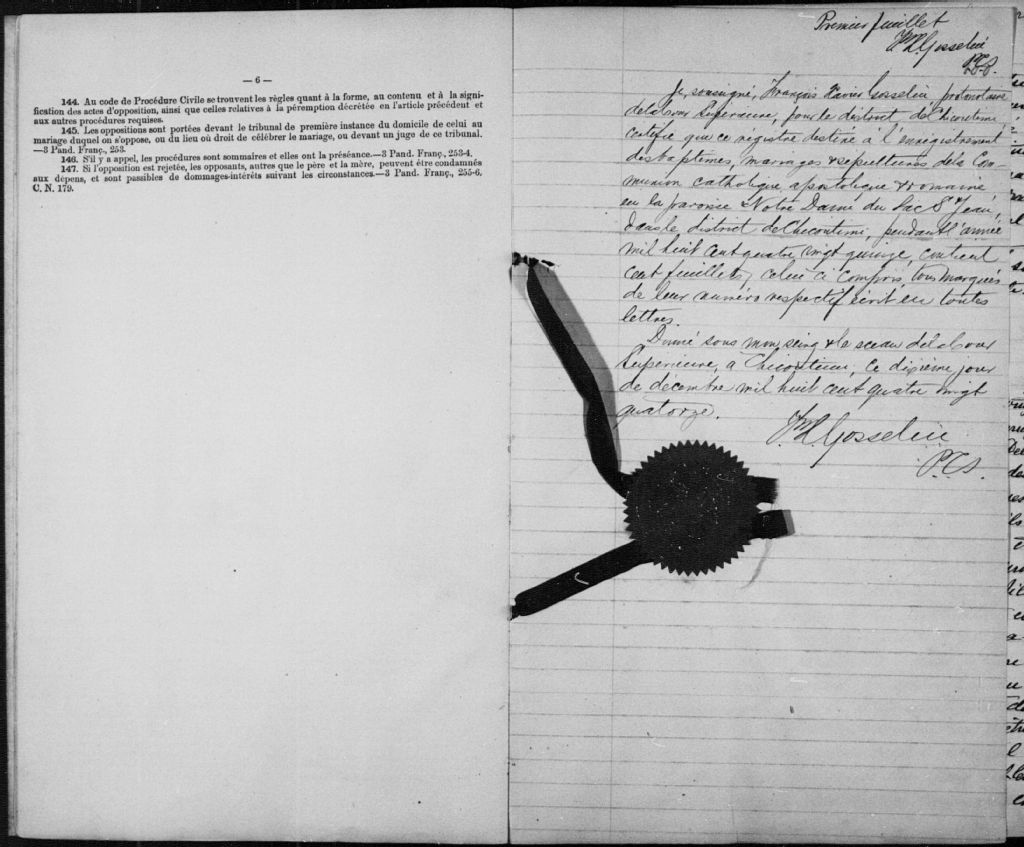 — 6 —
144. Au code de Procédure Civile se trouvent les règles quant à la forme, au contenu et à la signi-
fication des actes d'opposition, ainsi que celles relatives à la péremption décrétée en l'article précédent et
aux autres procédures requises.
145. Les oppositions sont portées devant le tribunal de première instance du domicile de celui au
mariage duquel on s'oppose, ou du lieu où droit de célébrer le mariage, ou devant un juge de ce tribunal.
—3 Pand. Franç., 253.
146. S'il y a appel, les procédures sont sommaires et elles ont la préséance.—3 Pand. Franç., 253-4.
147. Si l'opposition est rejetée, les opposants, autres que le père et la mère, peuvent être condamnés
aux dépens, et sont passibles de dommages-intérêts suivant les circonstances.—3 Pand. Franç., 255-6.
C. N. 179.
Premier feuillet
Gosselin
P.C.S.
Je, soussigné, François Xavier Gosselin, protonotaire
de la Cour Supérieure, pour le district de Chicoutimi
certifie que ce régistre destiné à l'enrégistrement
des baptêmes, mariages & sépultures de la Com-
munion catholique, apostolique & romaine
en la paroisse Notre Dame du Lac St Jean,
dans le district de Chicoutimi, pendant l'année
mil huit cent quatre vingt quinze, contient
cent feuillets, celui ci compris, tous marqués
de leur numéro respectif écrit en toutes
lettres.
Donné sous mon seing & le sceau de la Cour
Supérieure, à Chicoutimi, ce dixième jour
de décembre mil huit cent quatre vingt
quatorze.
Gosselin
P.C.S.